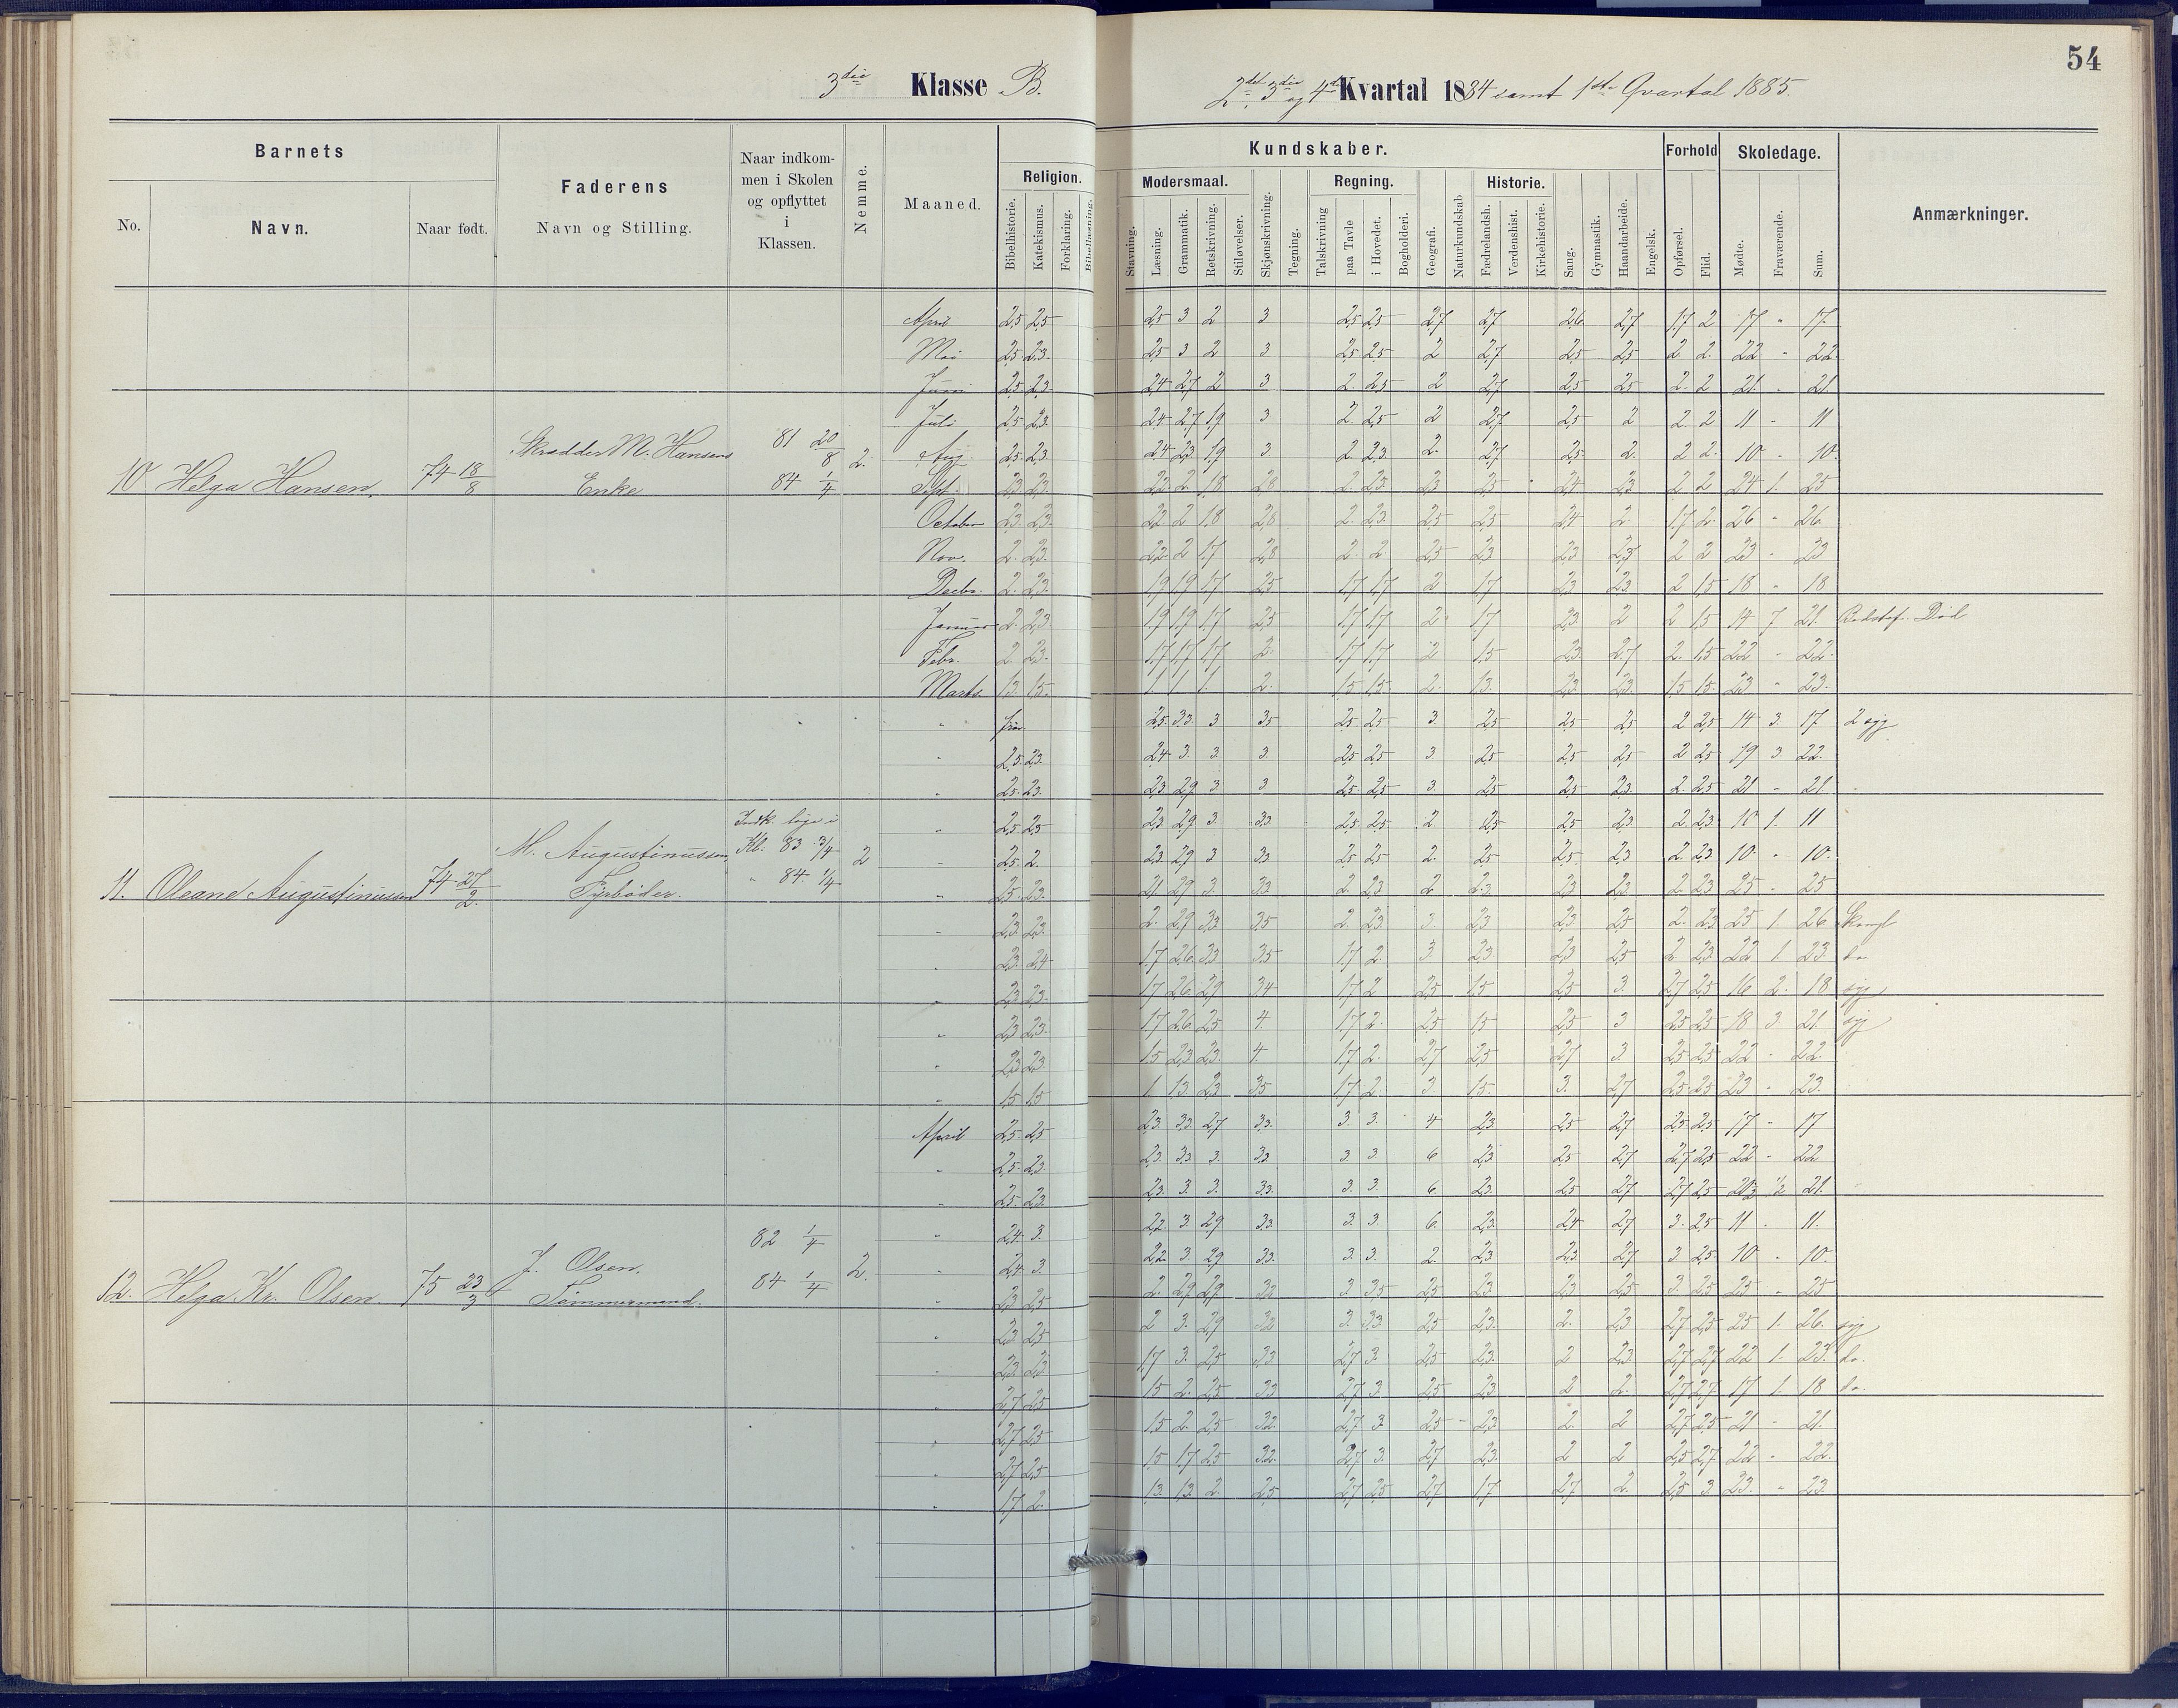 54
3die Klasse B.
2det, 3die og 4de Kvartal 1884 samt 1ste Qvartal 1885.
Barnets
Faderens
Navn og Stilling.
Naar indkom-
men i Skolen
og opflyttet
i
Klassen.
Nemme.
Maaned.
Religion.
Kundskaber.
Forhold
Skoledage.
Anmærkninger.
No.
Navn.
Naar født.
Bibelhistorie.
Katekismus.
Forklaring.
Bibellæsning.
Modersmaal.
Regning.
Historie.
Stavning.
Læsning.
Grammatik.
Retskrivning.
Stiløvelser.
Skjønskrivning.
Tegning.
Talskrivning
paa Tavle
i Hovedet.
Bogholderi.
Geografi.
Naturkundskab
Fædrelandsh.
Verdenshist.
Kirkehistorie.
Sang.
Gymnastik.
Haandarbeide.
Engelsk.
Opførsel.
Flid.
Mødte.
Fraværende.
Sum.
April 2,5 2,5 2,5 3 2 3 2,5 2,5 2,7 2,7 2,6 2,7 1,7 2 17 " 17
Mai 2,5 2,3 2,5 3 2 3 2,5 2,5 2 2,7 2,5 2,5 2 2 22 " 22
Juni 2,5 2,3 2,4 2,7 2 3 2 2,5 2 2,7 2,5 2,5 2 2 21 " 21
Juli 2,5 2,3 2,4 2,7 1,9 3 2 2,5 2 2,7 2,5 2 2 2 11 " 11
10 Helga Hansen. 74 18/8 Skrædder M. Hansens Enke 81 20/8 84 1/4 2.
Aug. 2,5 2,3 2,4 2,3 1,9 3 2 2,3 2 2,7 2,5 2 2 2 10 " 10
Sept. 2,3 2,3 2,2 2 1,8 2,8 2 2,3 2,3 2,5 2,4 2,3 2 2 24 1 25
October 2,3 2,3 2,2 2 1,8 2,8 2 2,3 2,5 2,5 2,4 2 1,7 2 26 " 26
Nov. 2 2,3 2,2 2 1,7 2,8 2 2 2,5 2,3 2,3 2,7 2 2 23 " 23
Decbr. 2 2,3 1,9 1,9 1,7 2,5 1,7 1,7 2 1,7 2,3 2,3 2 1,5 18 " 18
Januar 2 2,3 1,9 1,9 1,7 2,5 1,7 1,7 2 1,7 2,3 2 2 1,5 14 7 21 Død
Febr. 2 2,3 1,7 1,7 1,7 2 1,7 1,7 2 1,5 2,3 2,7 2 1,5 22 " 22
Marts 1,3 1,5 1 1 1 2 1,5 1,5 2 1,3 2,3 2,3 1,5 1,5 23 " 23
" 2,5 3,3 3 3,5 2,5 2,5 3 2,5 2,5 2,5 2 2,5 14 3 17 2 syg
" 2,5 2,3 2,4 3 3 3 2,5 2,5 3 2,5 2,5 2,5 2 2,5 19 3 22
" 2,5 2,3 2,3 2,9 3 3 2,5 2,5 3 2,5 2,5 2,3 2 2,5 21 " 21
" 2,5 2,5 2,3 2,9 3 3,3 2,5 2,5 2 2,5 2,5 2,3 2 2,3 10 1 11
11. Oleane Augustinussen 74 27/2 M. Augustinussen, Fyrbøder. Indk. lige i Kl. 83 3/4 " 84 1/4 2
" 2,5 2 2,3 2,9 3 3,3 2,5 2,5 2 2,5 2,5 2,3 2 2,3 10 " 10
" 2,5 2,3 2,1 2,9 3 3,3 2 2,3 2 2,3 2,3 2,3 2 2,3 25 " 25
" 2,3 2,3 2 2,9 3,3 3,5 2 2,3 3 2,3 2,3 2,5 2 2,3 25 1 26
" 2,3 2,4 1,7 2,6 3,3 3,5 1,7 2 3 2,3 2,3 2,5 2 2,3 22 1 23 do
" 2,3 2,3 1,7 2,6 2,9 3,4 1,7 2 2,5 1,5 2,5 3 2,7 2,5 16 2 18 syg
" 2,3 2,3 1,7 2,6 2,5 4 1,7 2 2,5 1,5 2,5 3 2,5 2,5 18 3 21 syg
" 2,3 2,3 1,5 2,3 2,3 4 1,7 2 2,7 2,5 2,7 3 2,5 2,5 22 " 22
" 1,5 1,5 1 1,3 2,3 3,5 1,7 2 3 1,5 3 2,7 2,5 2,5 23 " 23
April 2,5 2,5 2,3 3,3 2,7 3,3 3 3 4 2,3 2,5 2,7 2,5 2,5 17 " 17
" 2,5 2,3 2,3 3,3 3 3,3 3 3 6 2,3 2,5 2,7 2,7 2,5 22 " 22
" 2,5 2,3 2,3 3 3 3,3 3 3 6 2,3 2,5 2,7 2,7 2,5 20½ ½ 21
" 2,4 3 2,2 3 2,9 3,3 3 3 6 2,3 2,4 2,7 3 2,5 11 " 11
12. Helga Kr. Olsen. 75 23/3 J. Olsen. Tømmermand. 82 1/4 84 1/4 2.
" 2,4 3 2,2 3 2,9 3,3 3 3 2 2,3 2,3 2,7 3 2,5 10 " 10
" 2,3 2,5 2 2,9 2,9 3,2 3 3,5 2,5 2,3 2,3 2,5 3 2,5 25 " 25
" 2,3 2,5 2 3 2,9 3,2 3 3,3 2,5 2,3 2 2,3 2,7 2,5 25 1 26 syg
" 2,3 2,3 1,7 3 2,5 3,3 2,7 3 2,5 2,3 2 2,3 2,7 2,7 22 1 23 do.
" 2,7 2,5 1,5 2 2,5 3,3 2,7 3 2,5 2,3 2 2 2,7 2,7 17 1 18 do.
" 2,7 2,5 1,5 2 2,5 3,2 2,7 3 2,5 2,3 2 2 2,7 2,5 21 " 21
" 2,7 2,5 1,5 1,7 2,5 3,2 2,7 3 2,7 2,3 2 2 2,5 2,7 22 " 22
" 1,7 2 1,3 1,3 2 2,5 2,7 2,5 2,7 1,7 2,7 2 2,5 3 23 " 23